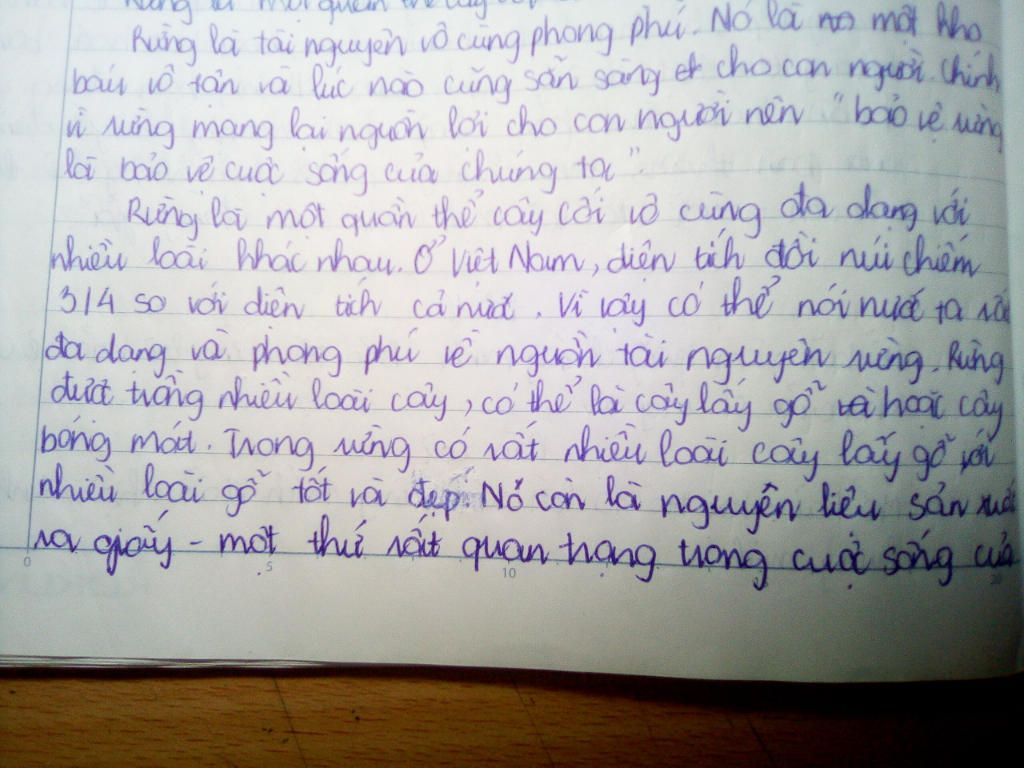 Rừng là một quần thể cây
Rừng là tài nguyên vô cùng phong phú. Nó là một kho
báu vô tận và lúc nào cũng sẵn sàng cho con người. Chính
vì rừng mang lại nguồn lợi cho con người nên "bảo vệ rừng
là bảo vệ cuộc sống của chúng ta"
Rừng là một quần thể cây cối vô cùng đa dạng với
nhiều loài khác nhau. Ở Việt Nam, diện tích đồi núi chiếm
3/4 so với diện tích cả nước. Vì vậy có thể nói nước ta rất
đa dạng và phong phú về nguồn tài nguyên rừng. Rừng
được trồng nhiều loài cây, có thể là cây lấy gỗ hoặc cây
bóng mát. Trong rừng có rất nhiều loài cây lấy gỗ với
nhiều loại gỗ tốt và đẹp. Nó còn là nguyên liệu sản xuất
ra giấy - một thứ rất quan trọng trong cuộc sống của
0 5 10